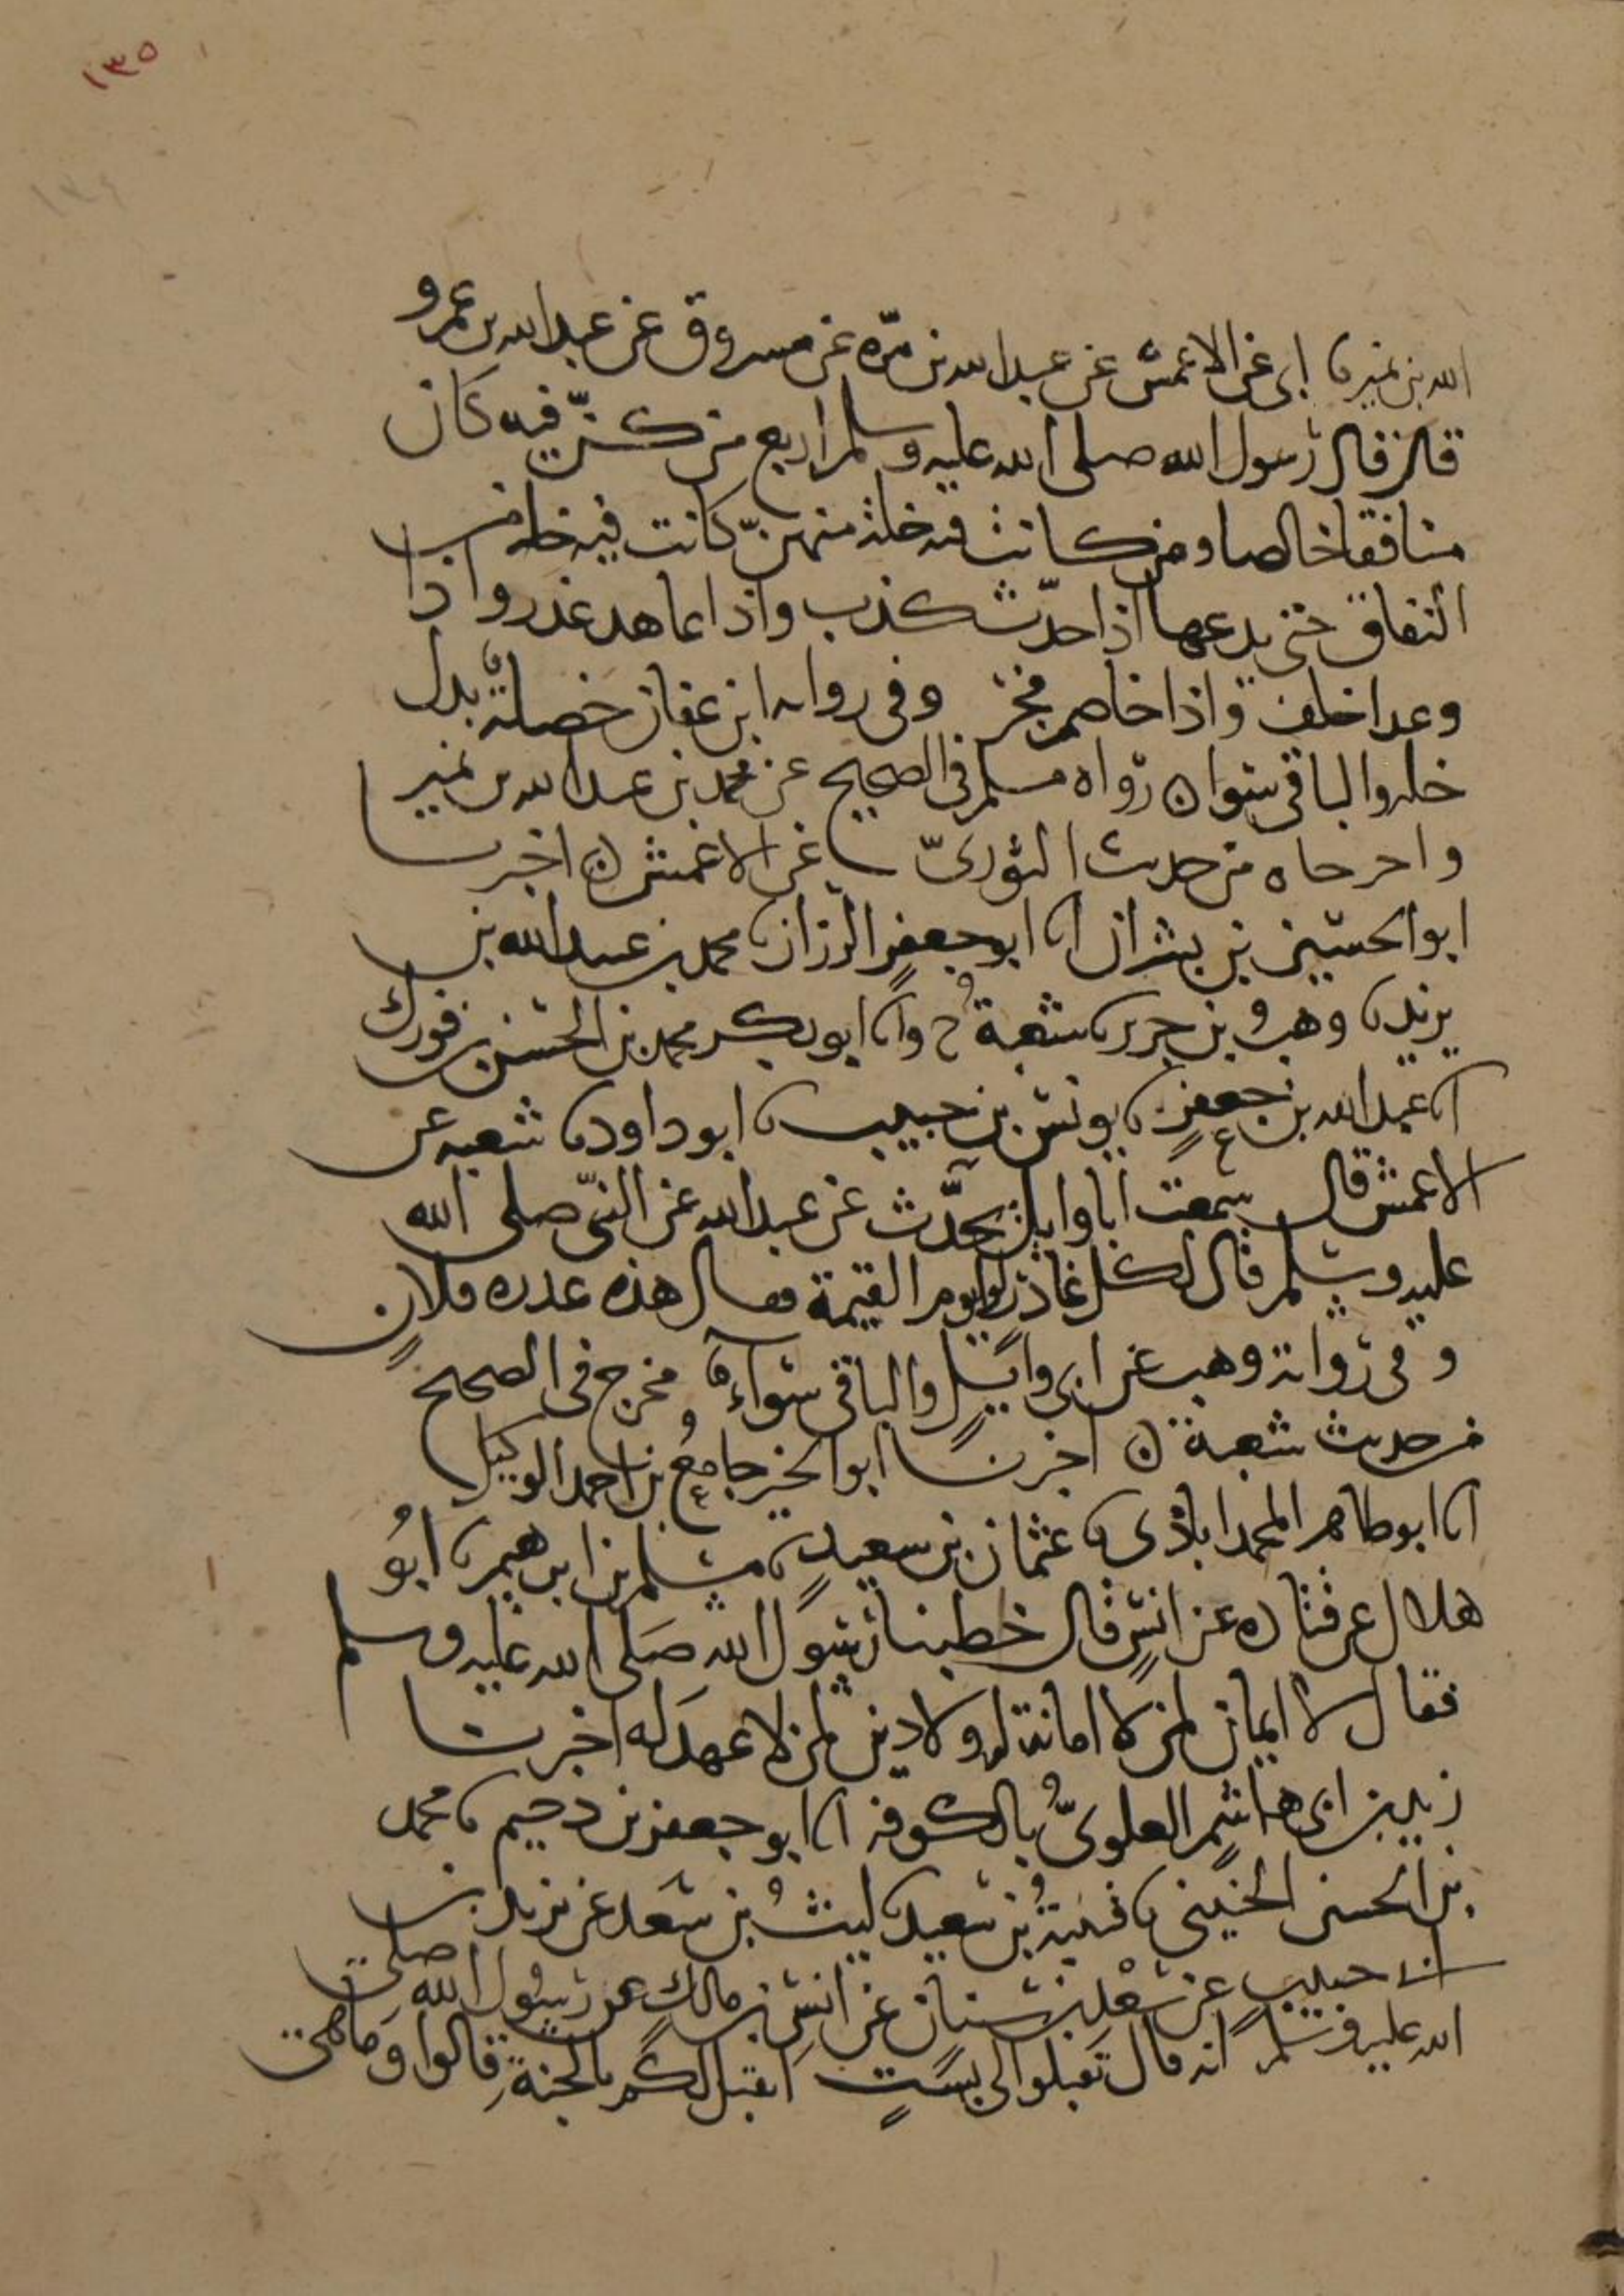 ١٣٥
١٣٤
الله بن نمير نا ابى عن الاعمش عن عبد الله بن مرّه عن مسروق عن عبد الله بن عمرو
قال قال رسول الله صلى الله عليه وسلم اربع من كنّ فيه كان
منافقا خالصا ومن كانت فيه خلة منهنّ كانت فيه خلة من
النفاق حتى يدعها اذا حدّث كذب واذا عاهد غدر واذا
وعد اخلف واذا خاصم فجر وفى رواية ابن عفان خصلة بدل
خلة والباقى سوا ن رواه مسلم فى الصحيح عن محمد بن عبد الله بن نمير
واخرجاه من حديث الثورىّ عن الاعمش ن اخبرنا
ابو الحسين بن بشران انا ابو جعفر الرزاز نا محمد بن عبيد الله بن
يزيد نا وهب بن جرير نا شعبة ح وانا ابو بكر محمد بن الحسن بن فورك
انا عبد الله بن جعفر نا يونس بن حبيب نا ابو داود نا شعبه عن
الاعمش قال سمعت ابا وايل يحدّث عن عبد الله عن النبىّ صلى الله
عليه وسلم قال لكل غادر لوا يوم القيمة فيقال هذه غدره فلان
وفى رواية وهب عن ابى وايل والباقى سواء مخرج فى الصحيح
من حديث شعبة ن اخبرنا ابو الخير جامع بن احمد الوكيل
انا ابو طاهر المحمداباذى نا عثمان بن سعيد نا مسلم بن ابرهيم نا ابو
هلال عن قتاده عن انس قال خطبنا رسول الله صلى الله عليه وسلم
فقال لا ايمان لمن لا امانة له ولا دين لمن لا عهد له اخبرنا
زيد بن ابى هاشم العلوىّ بالكوفه انا ابو جعفر بن دحيم نا محمد
بن الحسين الحنينى نا قتيبة بن سعيد نا ليث بن سعد عن يزيد بن
ابى حبيب عن سعد بن سنان عن انس بن مالك عن رسول الله صلى
الله عليه وسلم انه قال تقبلوا لى بست اتقبل لكم بالجنة قالوا وما هى